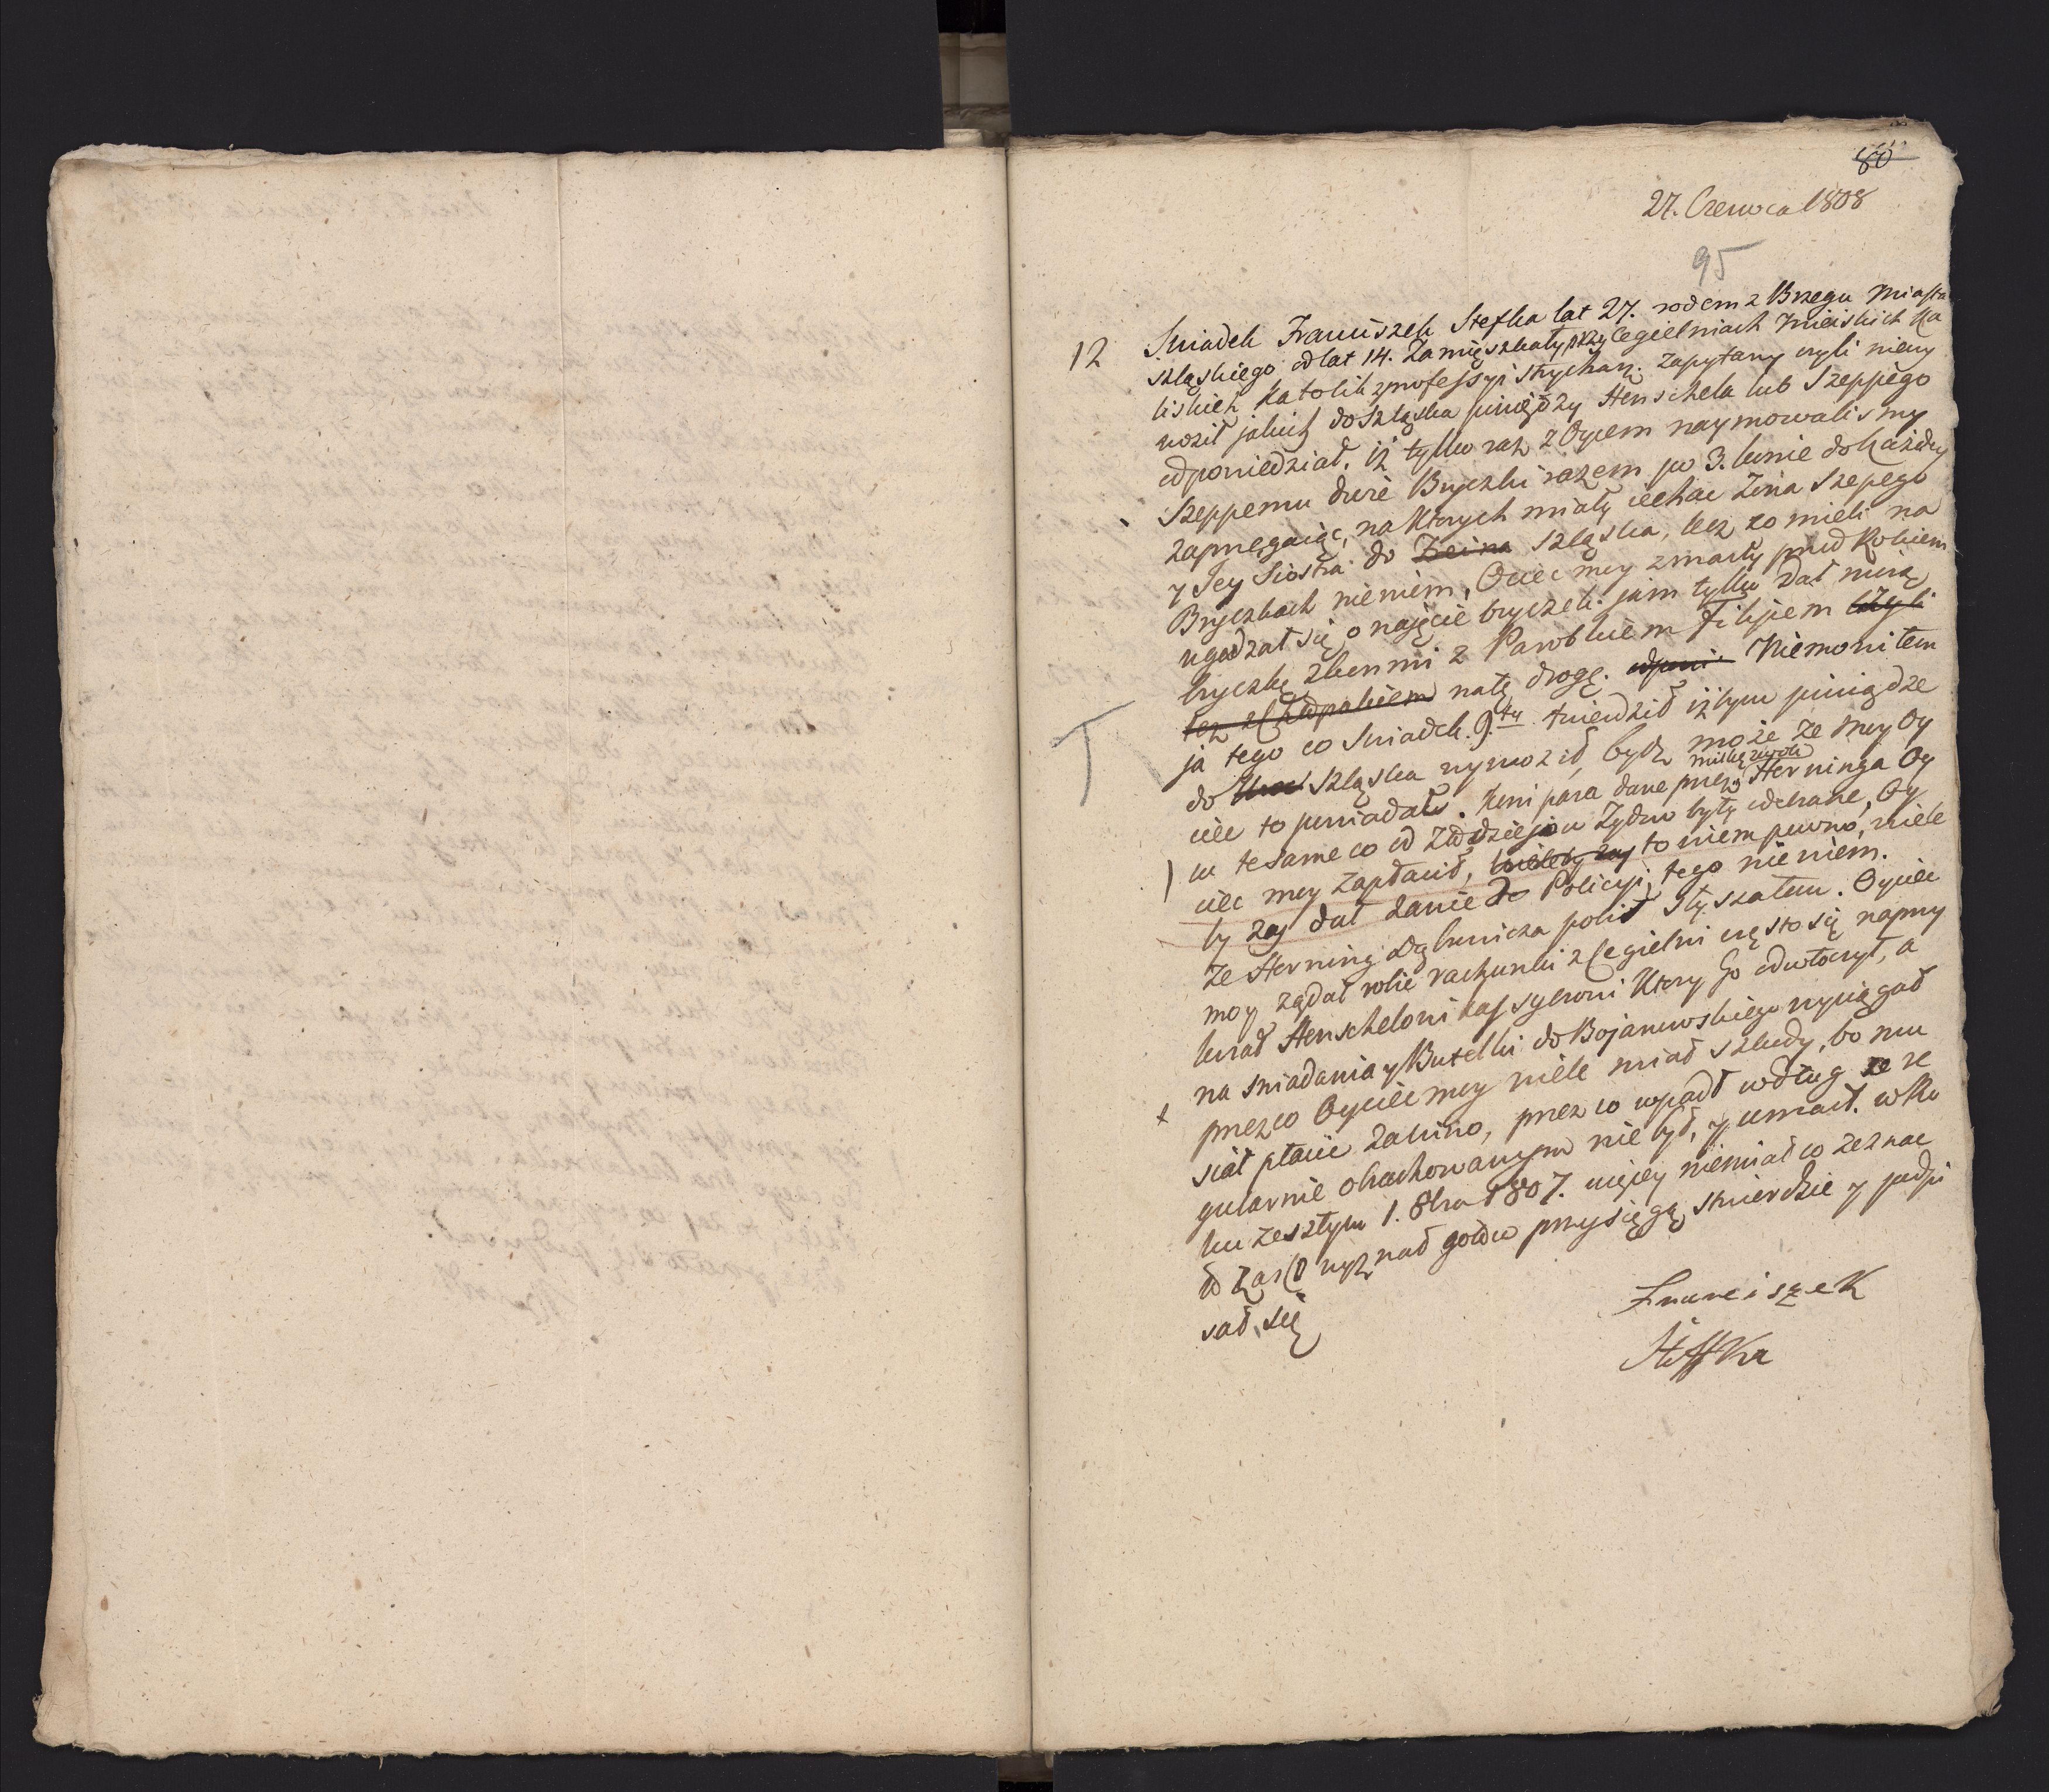 80
27. Czerwca 1808
95
12 Swiadek Franciszek Stefka lat 27. rodem z Brzegu Miasta
szląskiego od lat 14. zamięszkały przy Cegielniach Mieiskich Ka
liskich, Katolik z professyi strycharz. zapytany czyli niewy
woził jakich do Szląska piniędzy Henschela lub Szeppego
odpowiedział. iż tylko raz z Oycem naymowalismy
Szeppemu dwie Bryczki razem po 3. konie do każdey
zaprzęgaiąc, na Ktorych miały iechac Zona Szepego
y Jey Siostra do Szląska, lecz co mieli na
Bryczkach niewiem, Ociec moy zmarły przed Rokiem
ugadzał się o najęcie bryczek. jam tylko dał swią
bryczkę z konmi z Parobkiem Filipem czyli
też z Chłopakiem natę drogę. odpowi. Niemowiłem
ja tego co Swiadek 9.ty twierdził iżbym piniądze
do Szląska wywoził, bydz może że moy Oy
ciec to powiadał. Koni para dane przez Herninga Oy
cu tesame co od Złodzieiow Zydow były odebrane, Oy
ciec moy zapłacił, to wiem pewno, wiele
by zaś dał zanie do Policyi, tego niewiem.
Ze Herning Dąbrwnicza pobił słyszałem. Oyciec
moy żądał robić rachunki z Cegielni często się naprzy
krzał Henschelowi kassyerowi Ktory Go odwłoczył, a
na sniadania y Butelki do Bojanowskiego wyciągał
przezco Oyciec moy wiele miał szkody, bo mu
siał płacic zawino, przez co upadł według ze re
gularnie obrachowanym nie był, y umarł. w Ro
ku zeszłym 1. 8bra 1807. więcey niemiał co zeznac
to zas co wyznał gotow przysięgą stwierdzic y podpi
sał się
Franciszek
Steffka